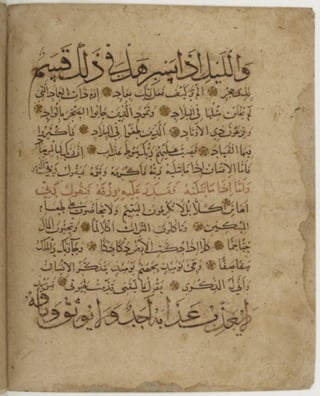 والليل اذا يسر هل في ذلك قسم
لذي حجر الم تر كيف فعل ربك بعاد ارم ذات العماد التي
لم يخلق مثلها في البلاد وثمود الذين جابوا الصخر بالواد
وفرعون ذي الاوتاد الذين طغوا في البلاد فاكثروا
فيها الفساد فصب عليهم ربك سوط عذاب ان ربك لبالمرصاد
فاما الانسان اذا ما ابتليه ربه فاكرمه ونعمه فيقول ربي اكرمن
واما اذا ما ابتليه فقدر عليه رزقه فيقول ربي
اهانن كلا بل لا تكرمون اليتيم ولا تحاضون على طعام
المسكين وتاكلون التراث اكلا لما وتحبون المال
حبا جما كلا اذا دكت الارض دكا دكا وجا ربك والملك
صفا صفا وجيء يومئذ بجهنم يومئذ يتذكر الانسان
وانى له الذكرى يقول يليتني قدمت لحياتي فيومئذ
لا يعذب عذابه احد ولا يوثق وثاقه